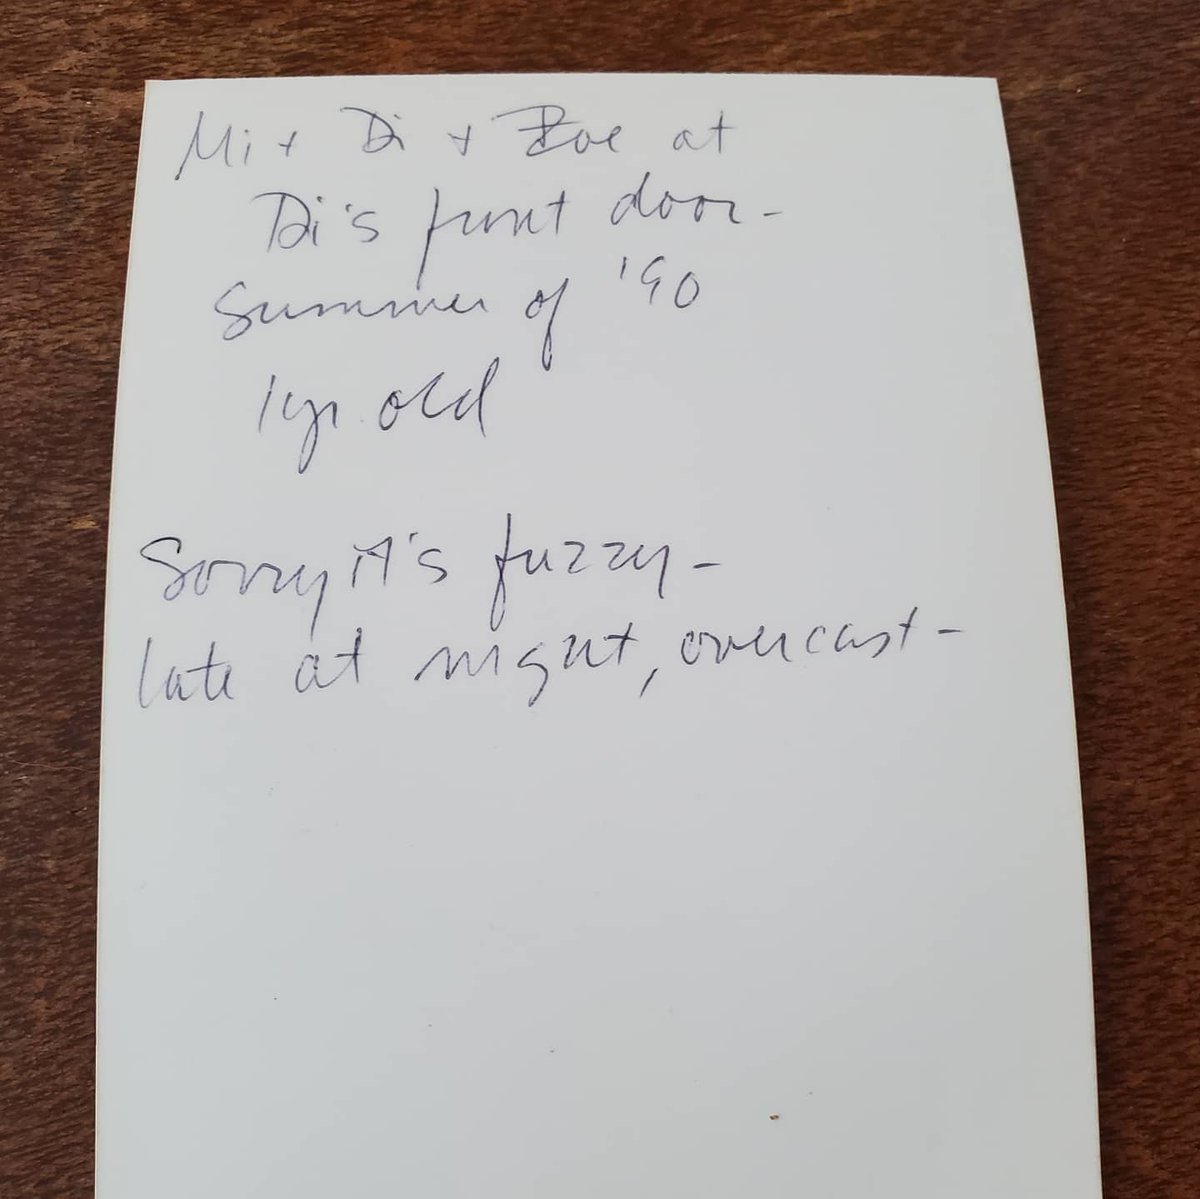 Mi + Di + Zoe at
Di's front door -
Summer of '90
1 yr. old
Sorry it's fuzzy -
late at night, overcast -